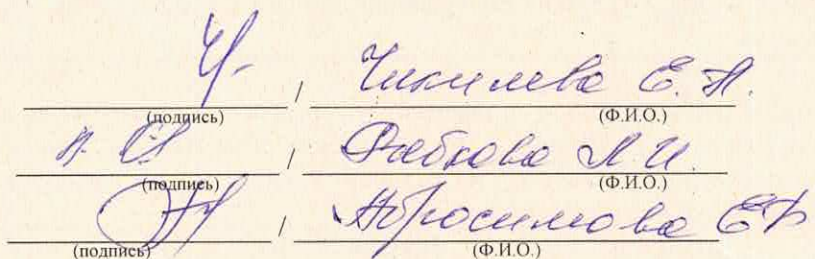 / Чикилева Е. Н.
(подпись) (Ф.И.О.)
/ Л. И.
(подпись) (Ф.И.О.)
/ Абросимова Е
(подпись) (Ф.И.О.)